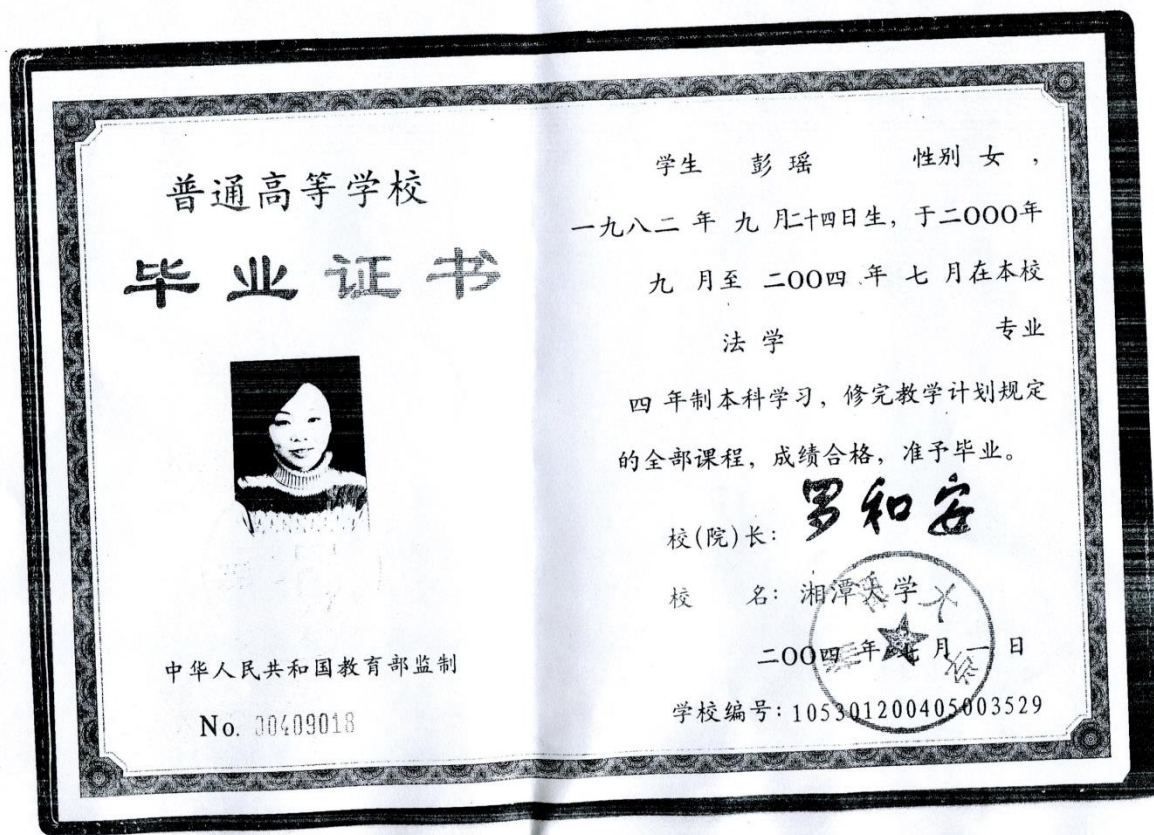 普通高等学校
毕业证书
中华人民共和国教育部监制
No. 00409018
学生 彭瑶 性别 女，
一九八二 年 九 月二十四日生，于二OOO年
九 月至 二OO四 年 七 月在本校
法学 专业
四 年制本科学习，修完教学计划规定
的全部课程，成绩合格，准予毕业。
校(院)长：罗和安
校 名：湘潭大学
二OO四 年 七 月 一 日
学校编号：105301200405003529
湘潭大学